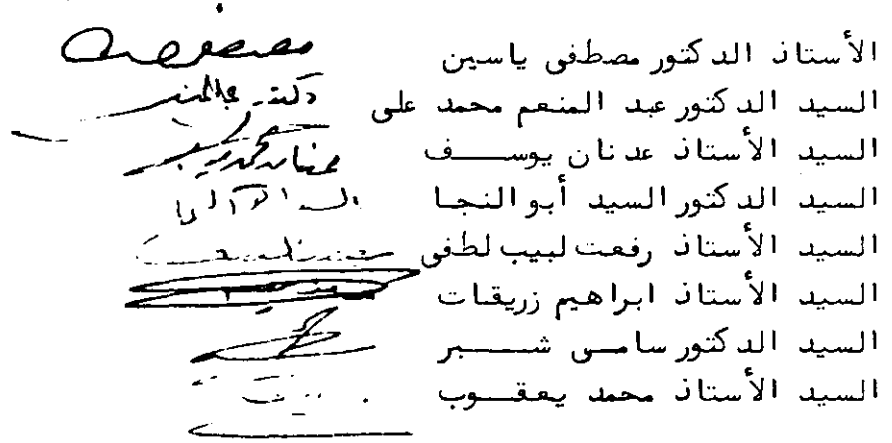 الأستاذ الدكتور مصطفى ياسين
السيد الدكتور عبد المنعم محمد على
السيد الأستاذ عدنان يوسـف
السيد الدكتور السيد أبو النجا
السيد الأستاذ رفعت لبيب لطفى
السيد الأستاذ ابراهيم زريقات
السيد الدكتور سامى شـــبر
السيد الأستاذ محمد يعقـوب